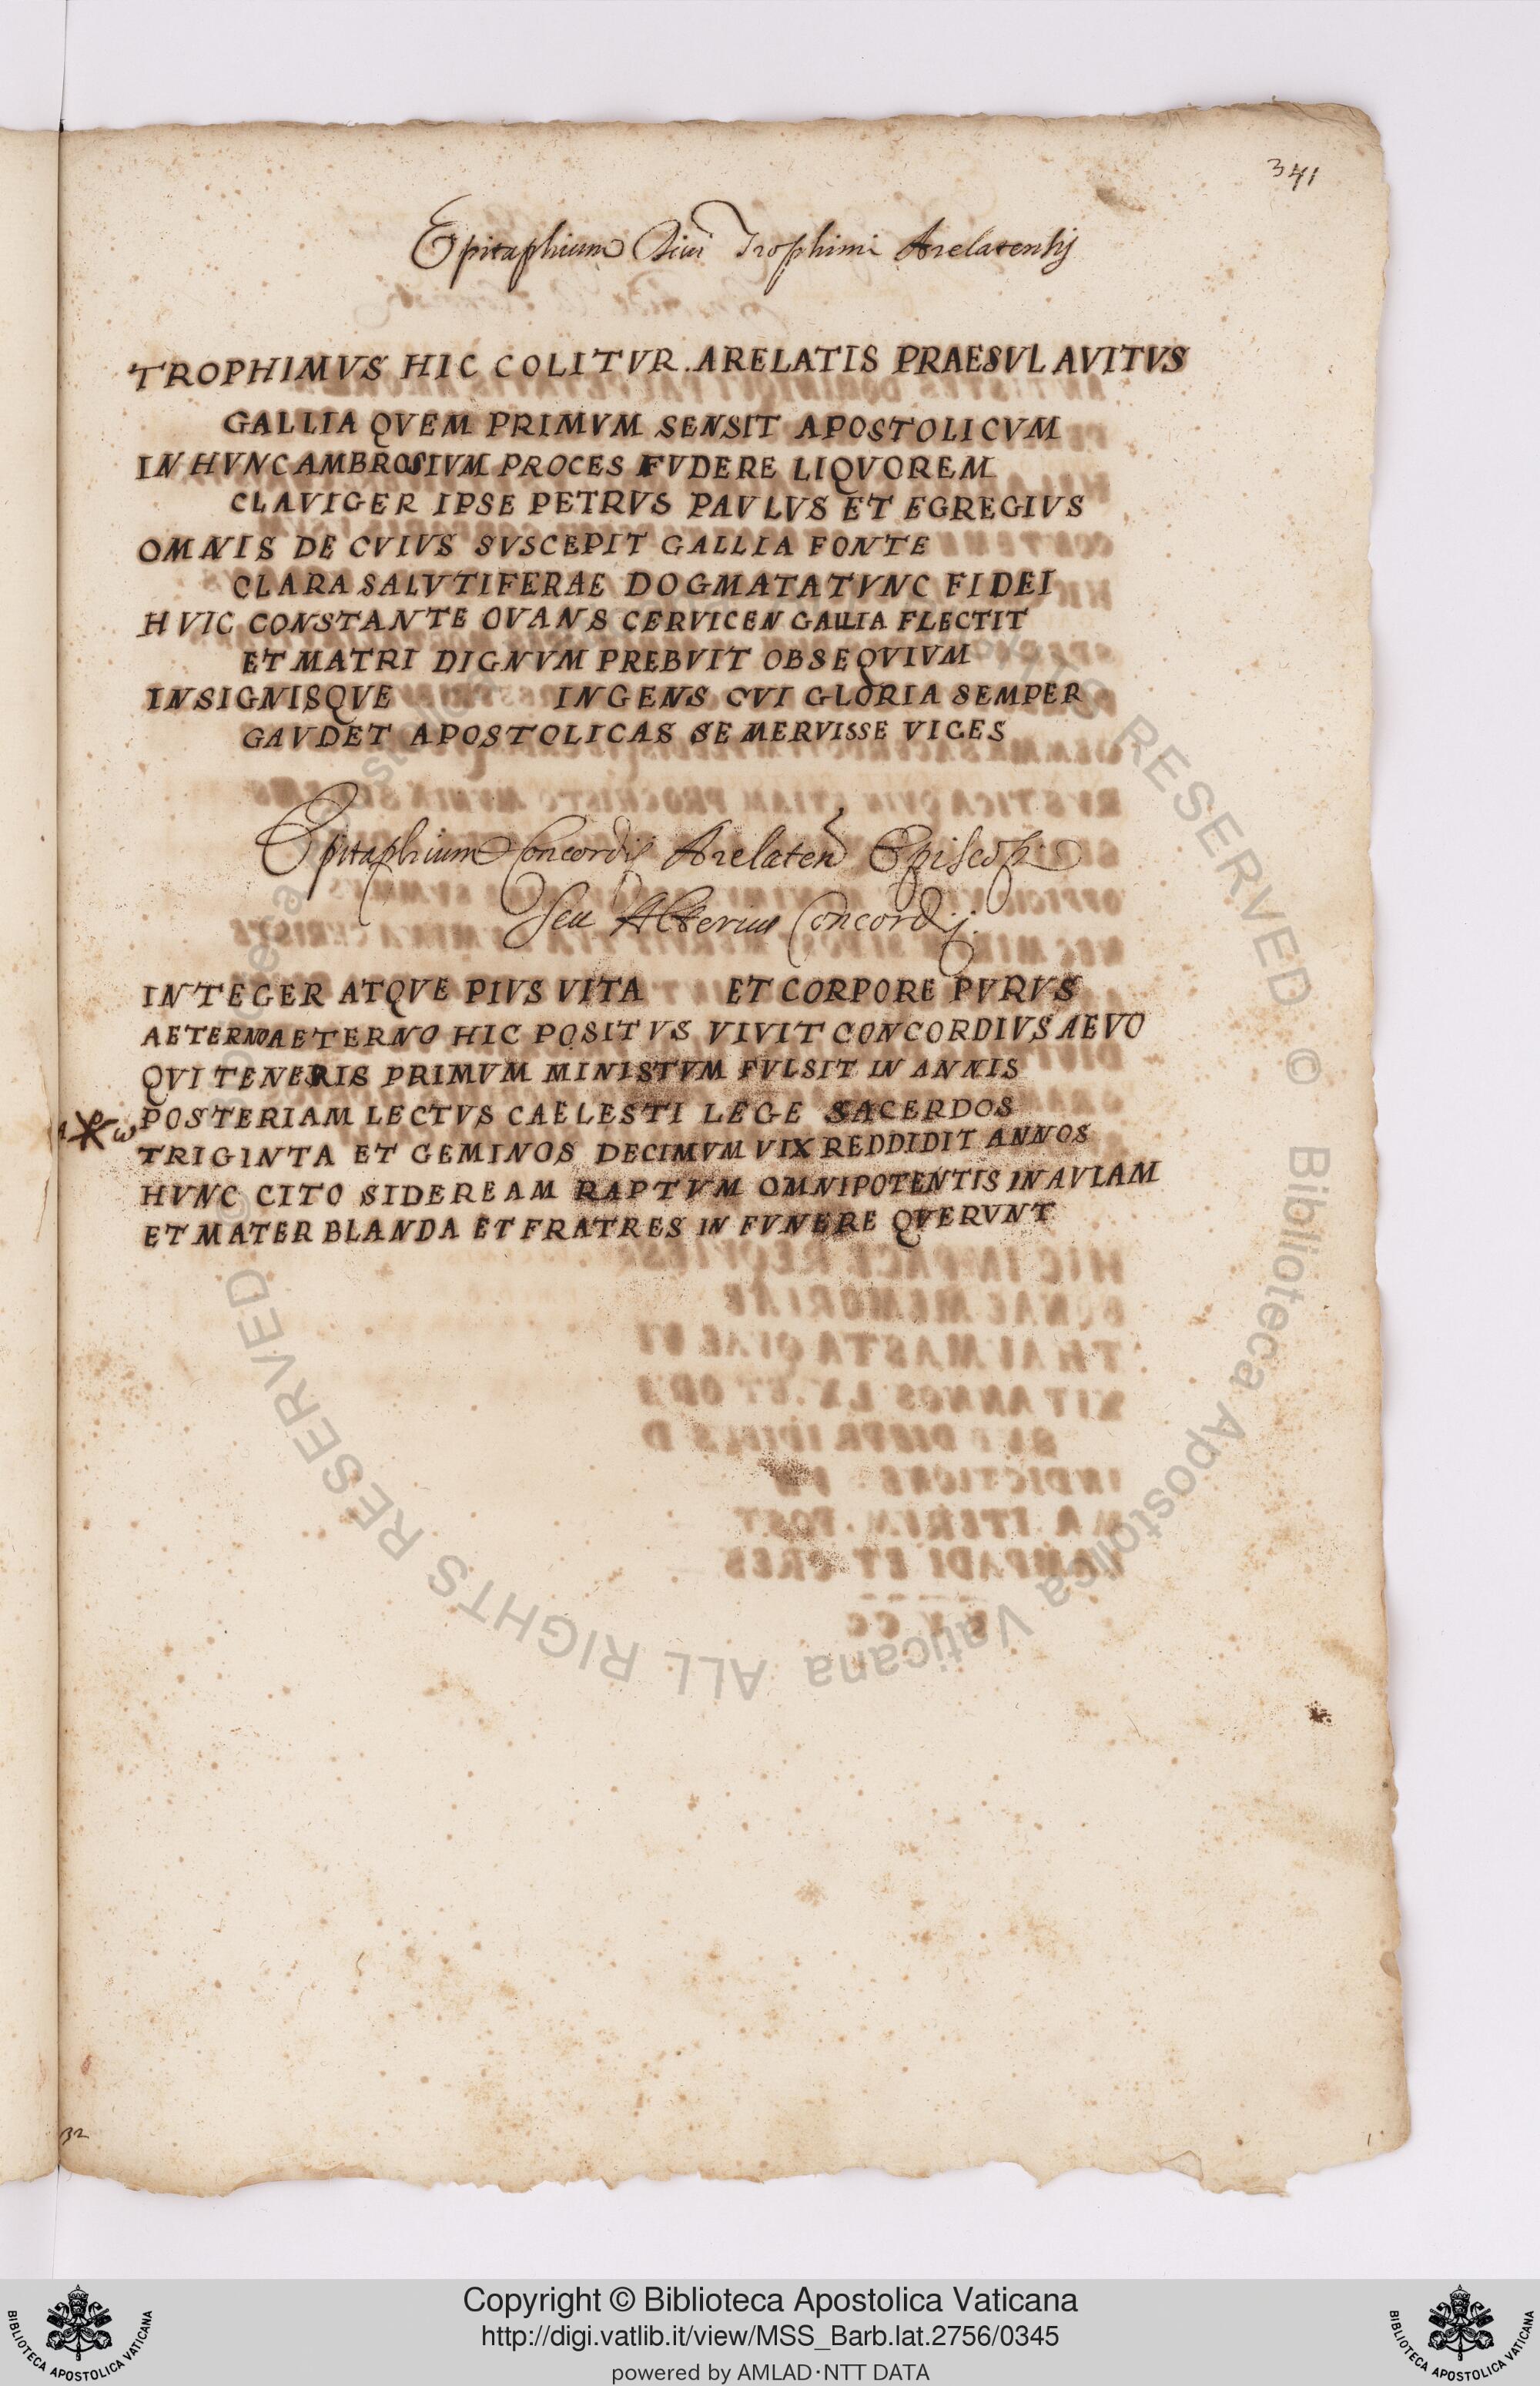 341
Epitaphium Diui Trophimi Arelatensis
TROPHIMVS HIC COLITVR . ARELATIS PRAESVL AVITVS
GALLIA QVEM PRIMVM SENSIT APOSTOLICVM
IN HVNC AMBROSIVM PROCES FVDERE LIQVOREM
CLAVIGER IPSE PETRVS PAVLVS ET EGREGIVS
OMNIS DE CVIVS SVSCEPIT GALLIA FONTE
CLARA SALVTIFERAE DOGMATA TVNC FIDEI
HVIC CONSTANTE OVANS CERVICEN GALLIA FLECTIT
ET MATRI DIGNVM PREBVIT OBSEQVIVM
INSIGNISQVE INGENS CVI GLORIA SEMPER
GAVDET APOSTOLICAS SE MERVISSE VICES
Epitaphium Concordij Arelaten Episcopi
Seu Alterius Concordij.
INTEGER ATQVE PIVS VITA ET CORPORE PVRVS
AETERNO AETERNO HIC POSITVS VIVIT CONCORDIVS AEVO
QVI TENERIS PRIMVM MINISTVM FVLSIT IN ANNIS
A ☧ ω POSTERIAM LECTVS CAELESTI LEGE SACERDOS
TRIGINTA ET GEMINOS DECIMVM VIX REDDIDIT ANNOS
HVNC CITO SIDEREAM RAPTVM OMNIPOTENTIS IN AVLAM
ET MATER BLANDA ET FRATRES IN FVNERE QVERVNT
32
1
© Biblioteca Apostolica Vaticana ALL RIGHTS RESERVED
Copyright © Biblioteca Apostolica Vaticana
http://digi.vatlib.it/view/MSS_Barb.lat.2756/0345
powered by AMLAD·NTT DATA
BIBLIOTECA APOSTOLICA VATICANA
BIBLIOTECA APOSTOLICA VATICANA